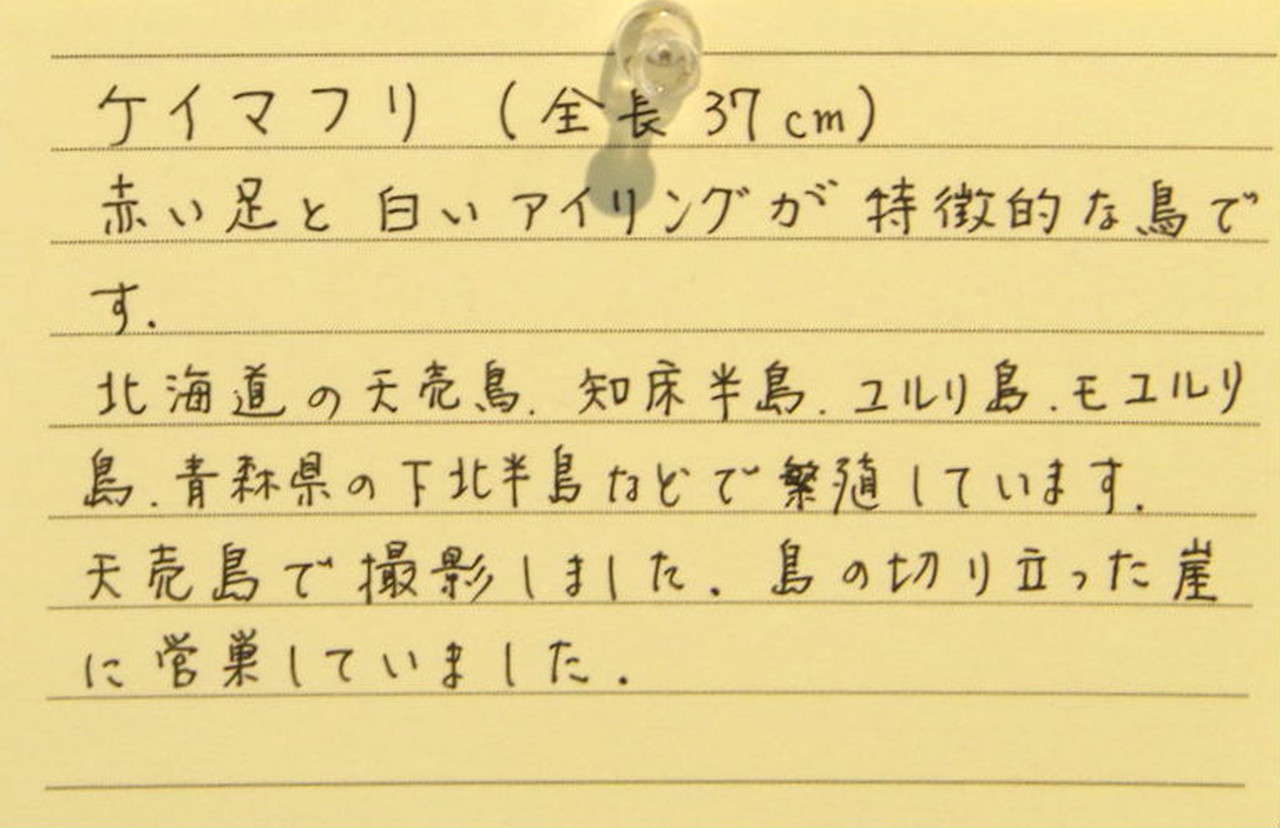 ケイマフリ (全長 37cm)
赤い足と白いアイリングが特徴的な鳥で
す.
北海道の天売島. 知床半島. ユルリ島. モユルリ
島. 青森県の下北半島などで繁殖しています.
天売島で撮影しました. 島の切り立った崖
に営巣していました.